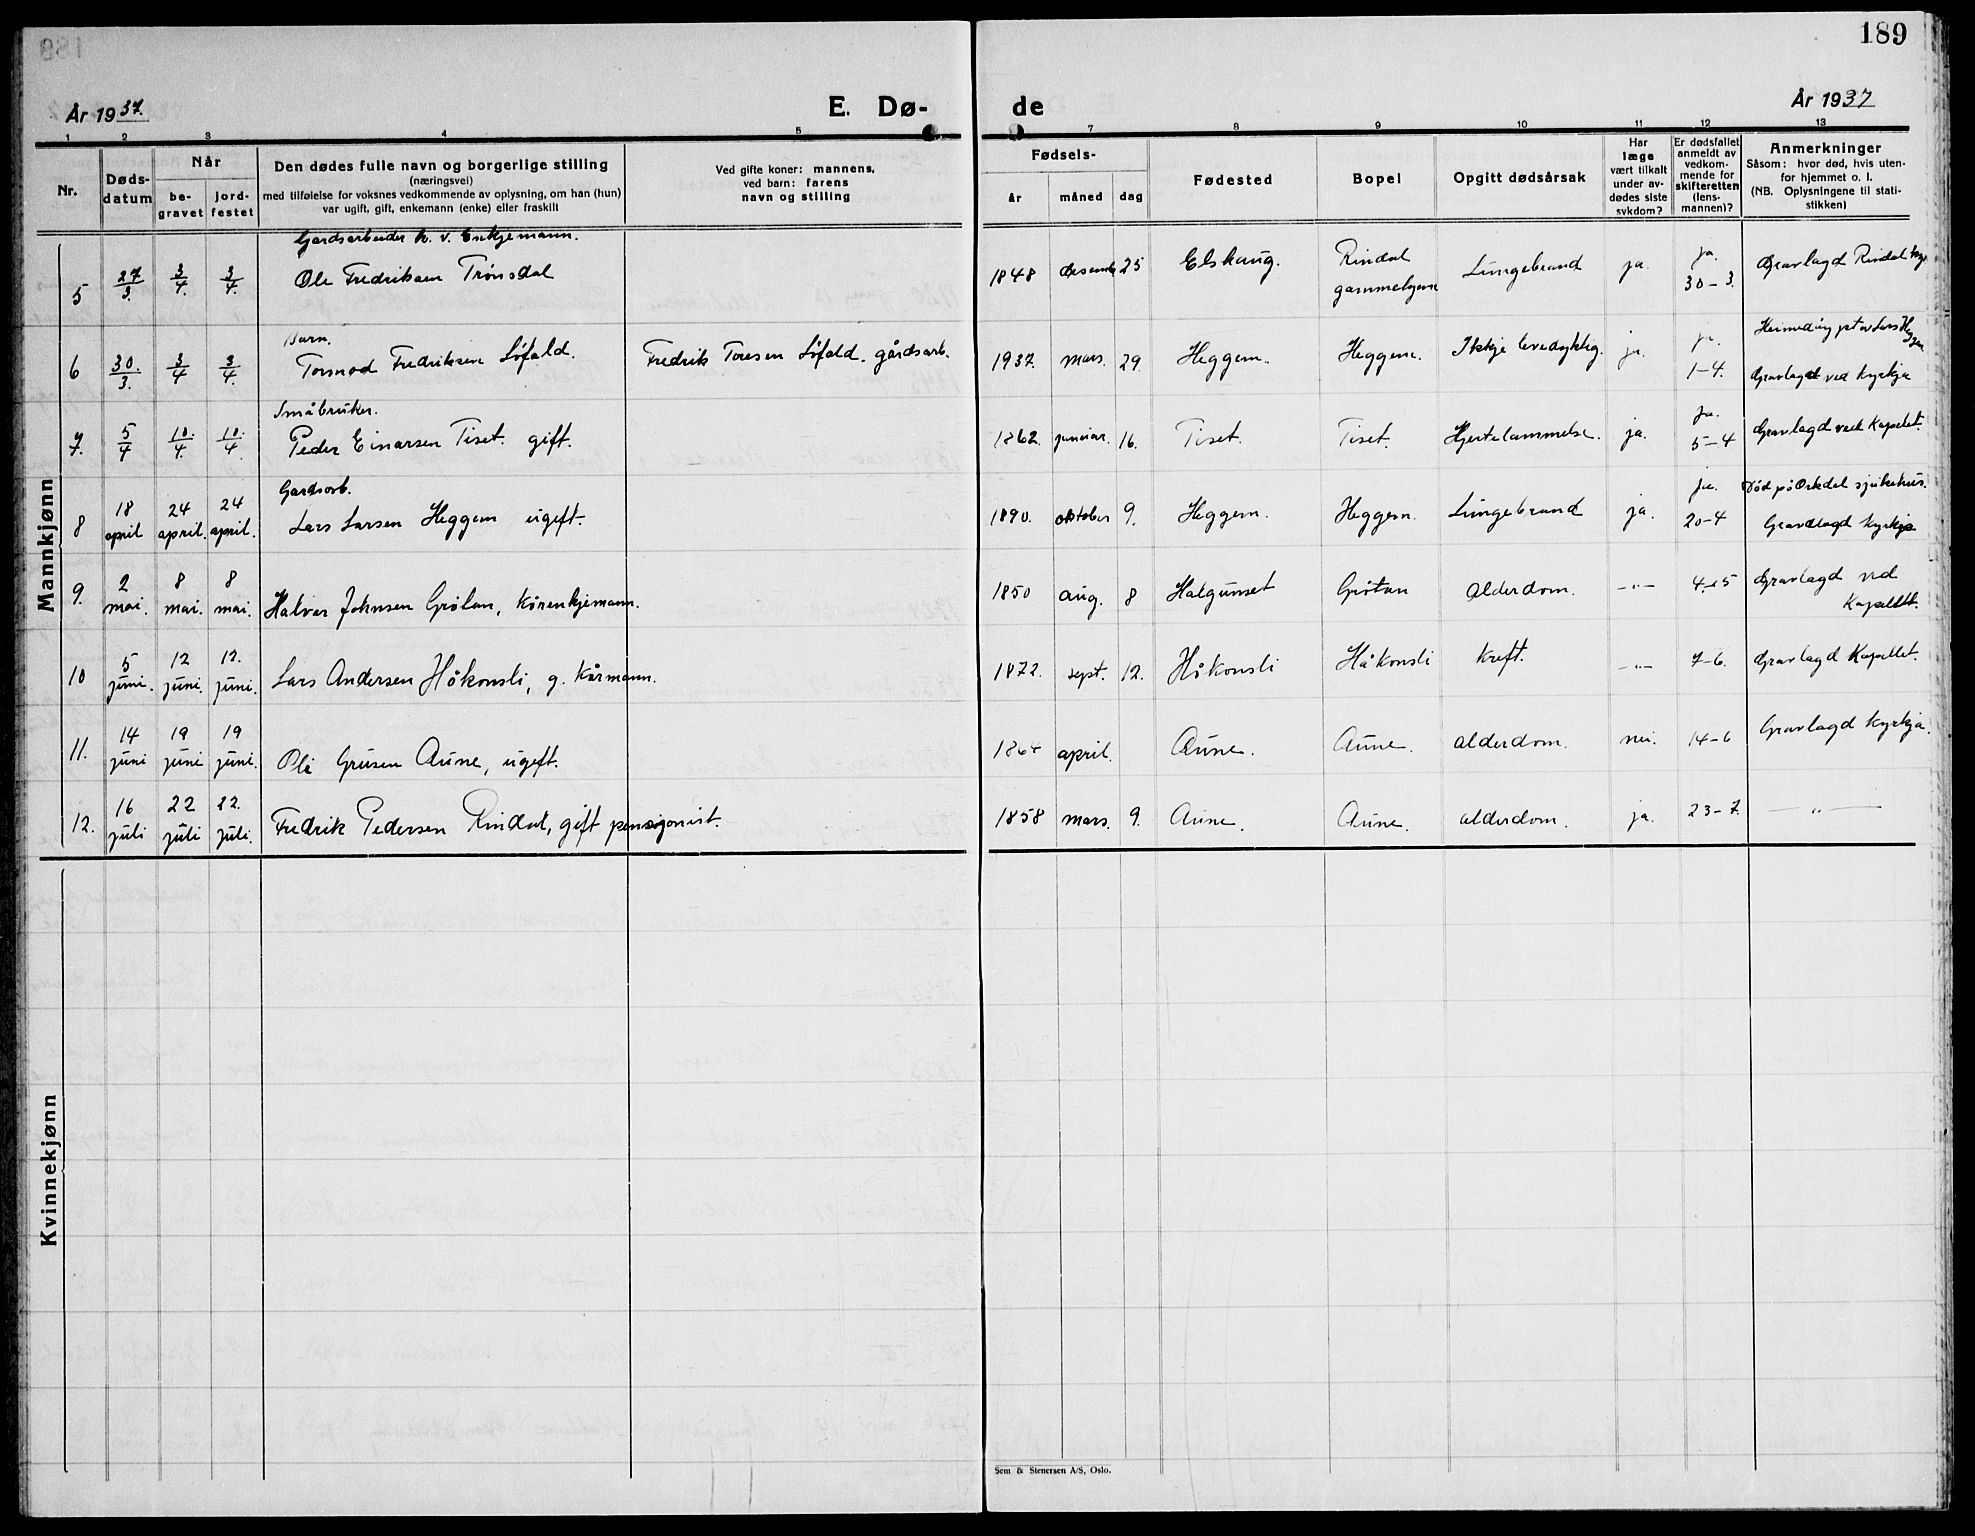 189
År 1937. E. Dø- de År 1937
1 2 3 4 5 7 8 9 10 11 12 13
Nr.
Døds-
datum
Når
be-
gravet
jord-
festet
Den dødes fulle navn og borgerlige stilling
(næringsvei)
med tilføielse for voksnes vedkommende av oplysning, om han (hun)
var ugift, gift, enkemann (enke) eller fraskilt
Ved gifte koner: mannens,
ved barn: farens
navn og stilling
Fødsels-
år måned dag
Fødested
Bopel
Opgitt dødsårsak
Har
læge
vært tilkalt
under av-
dødes siste
sykdom?
Er dødsfallet
anmeldt av
vedkom-
mende for
skifteretten
(lens-
mannen)?
Anmerkninger
Såsom: hvor død, hvis uten-
for hjemmet o. l.
(NB. Oplysningene til stati-
stikken)
Mannkjønn
Gardsarbeider k. v. Enkjemann.
5 27/3. 3/4. 3/4. Ole Fredriksen Trønsdal 1848 desember 25 Elskaug. Rindal Lungebrand ja. ja. Gravlagd Rindal
30-3.
Barn.
6 30./3. 3/4 3/4. Tormod Fredriksen Løfald. Fredrik Toresen Løfald. gårdsarb. 1937. mars. 29. Heggem. Heggem. Ikkje levedyktig. ja. ja.
1-4. Gravlagd ved kyrkja
Småbruker.
7. 5/4 10./4. 10./4. Peder Einarsen Tiset. gift. 1862. januar. 16. Tiset. Tiset. Hjertelammelse. ja. ja. Gravlagd ved Kapellet.
5-4
Gardsarb.
8 18 april 24 april. 24 april. Lars Larsen Heggem ugift. 1890. oktober 9. Heggem. Heggem. Lungebrand ja. ja. Død på Orkdal sjukehus.
20-4 Gravlagd kyrkja
9. 2 mai. 8 mai. 8 mai. Halvor Johnsen Grötan, kårenkjemann. 1850 aug. 8 Halgunset Grötan alderdom. -"- 4-5 Gravlagd ved
Kapellet.
10 5 juni. 12 juni. 12. juni. Lars Andersen Håkonsli, g. kårmann. 1872. sept. 12. Håkonsli Håkonsli kreft. -"- 7-6. Gravlagd Kapellet.
11. 14 juni 19 juni 19 juni. Ole Aune, ugift. 1864 april. Aune. Aune. alderdom. nei. 14-6 Gravlagd kyrkja.
12. 16 juli 22 juli 22. juli. Fredrik Pedersen Rindal, gift pensjonist. 1858 mars. 9. Aune. Aune. alderdom. ja. 23-7. -"-
Kvinnekjønn
Sem & Stenersen A/S, Oslo.